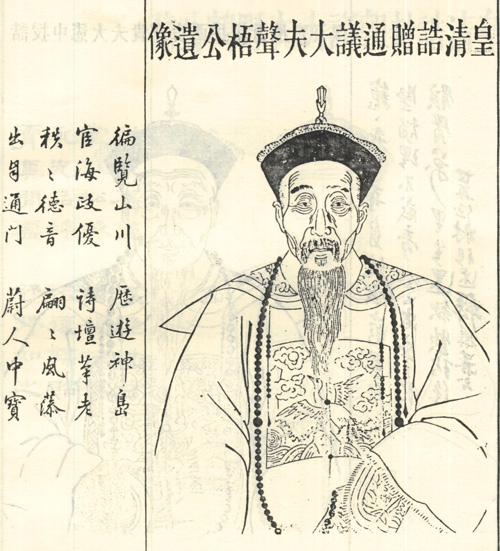 皇清誥贈通議大夫聲梧公遺像
徧覽山川 歷遊神島
宦海政優 詩壇老
秩〻德音 翩〻風藻
出通门 蔚人中寶